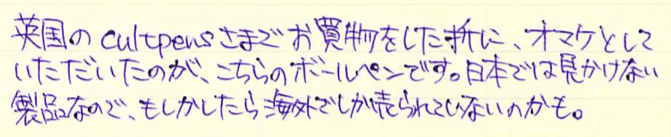 英国の cultpens さまでお買物をした折に、オマケとして
いただいたのが、こちらのボールペンです。日本では見かけない
製品なので、もしかしたら海外でしか売られていないのかも。